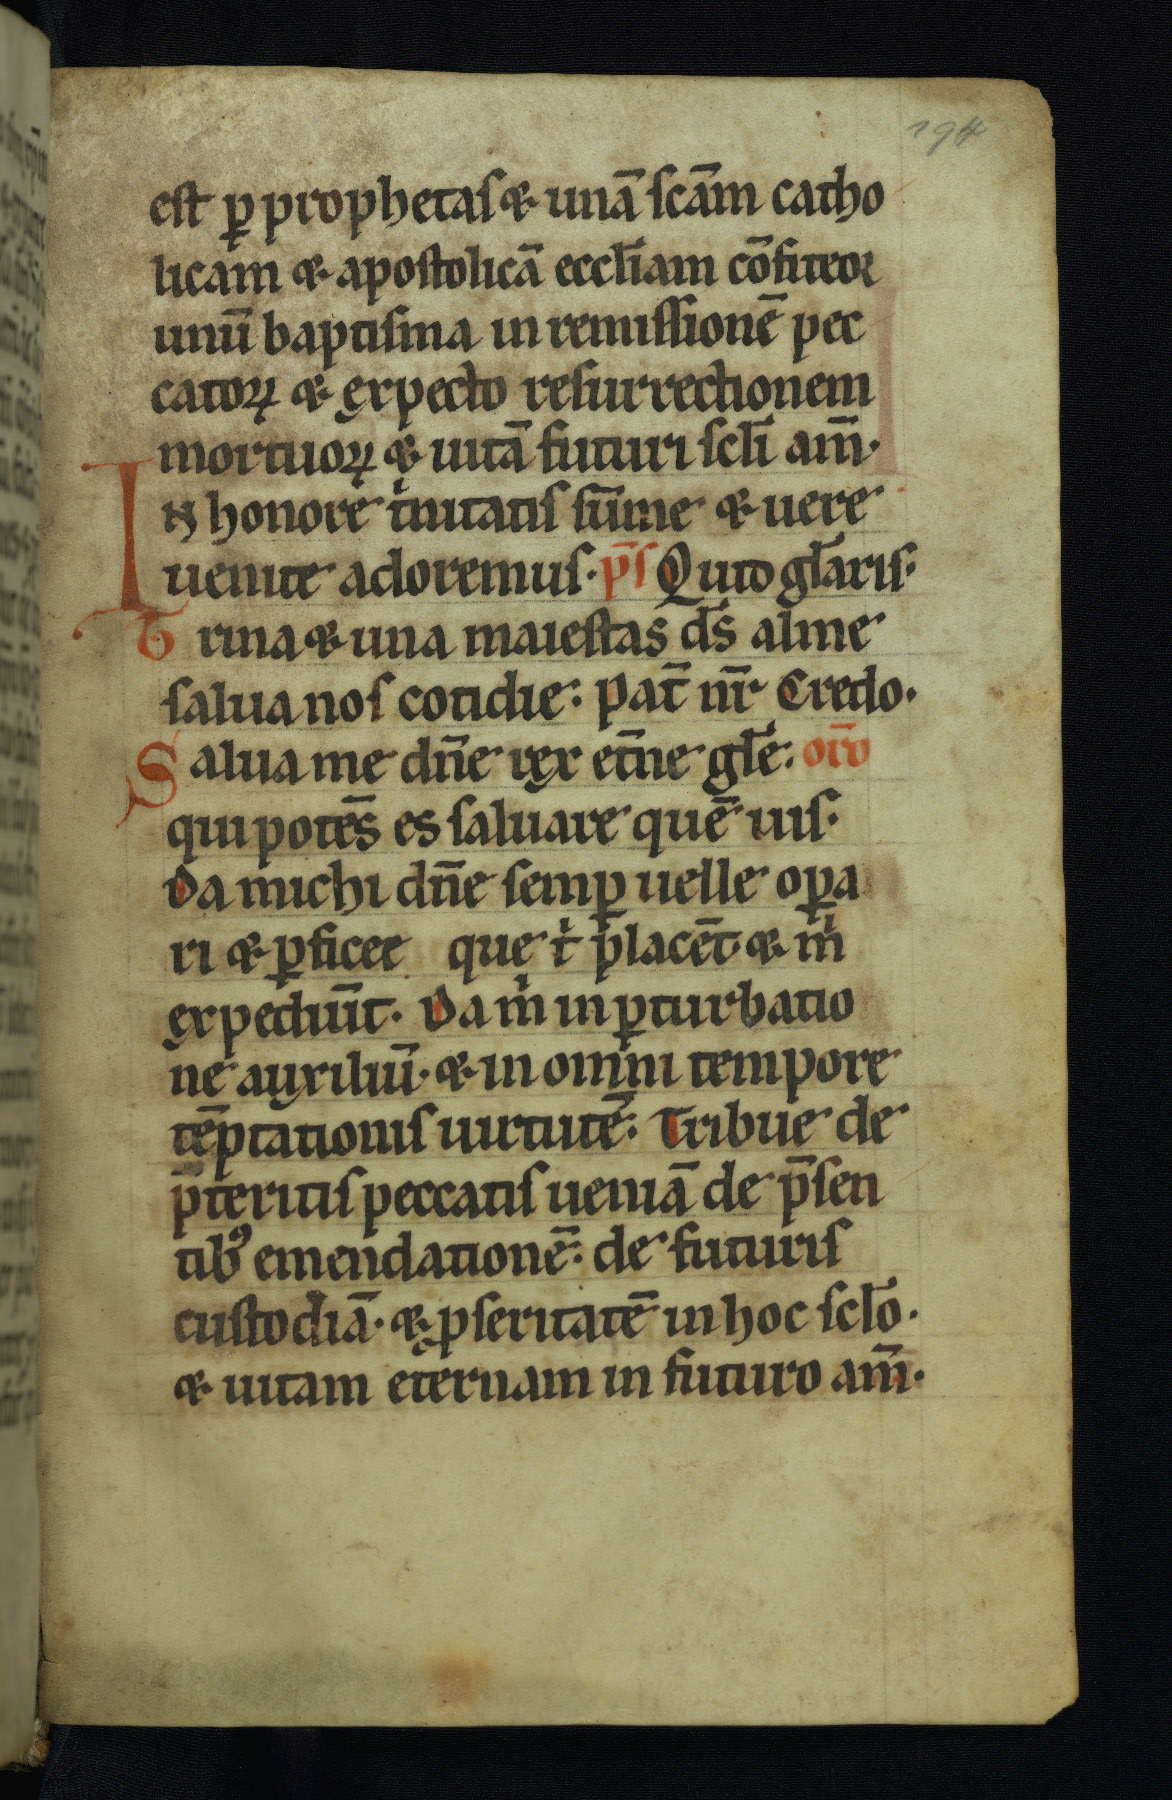 194
est ꝑ prophetas & unā scām catho
licam & apostolicā eccl̄iam cōfiteor
unū baptisma in remissionē pec
catoꝝ & expecto resurrectionem
mortuoꝝ & uitā futuri scl̄i am̄.
IN honore tͥnitatis sūme & uere
uenite adoremus. ps̄ Quto gl̄aris.
Trina & una maiestas ds̄ alme
salua nos cotidie: Pat̄ nr̄ Credo.
Salua me dn̄e rex et̄ne gl̄e: orō
qui potēs es saluare quē uis.
Da michi dn̄e semꝑ uelle oꝑa
ri & ꝑficee que tͥ placēt & mͥ
expediūt. Da mͥ in ꝑturbatio
ne auxiliū. & in omni tempore
tēptationis uirtutē: Tribue de
p̄teritis peccatis ueniā de p̄sen
tibꝰ emendationē: de futuris
custodiā. & ꝓseritatē in hoc scl̄o.
& uitam eternam in futuro am̄.